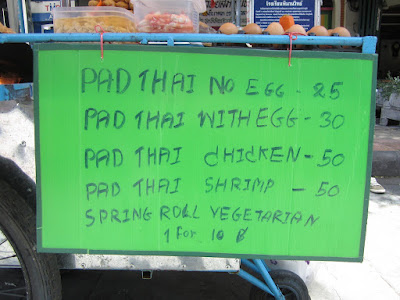 PAD THAI NO EGG - 25
PAD THAI WITH EGG - 30
PAD THAI CHICKEN - 50
PAD THAI SHRIMP - 50
SPRING ROLL VEGETARIAN
1 For 10 ฿